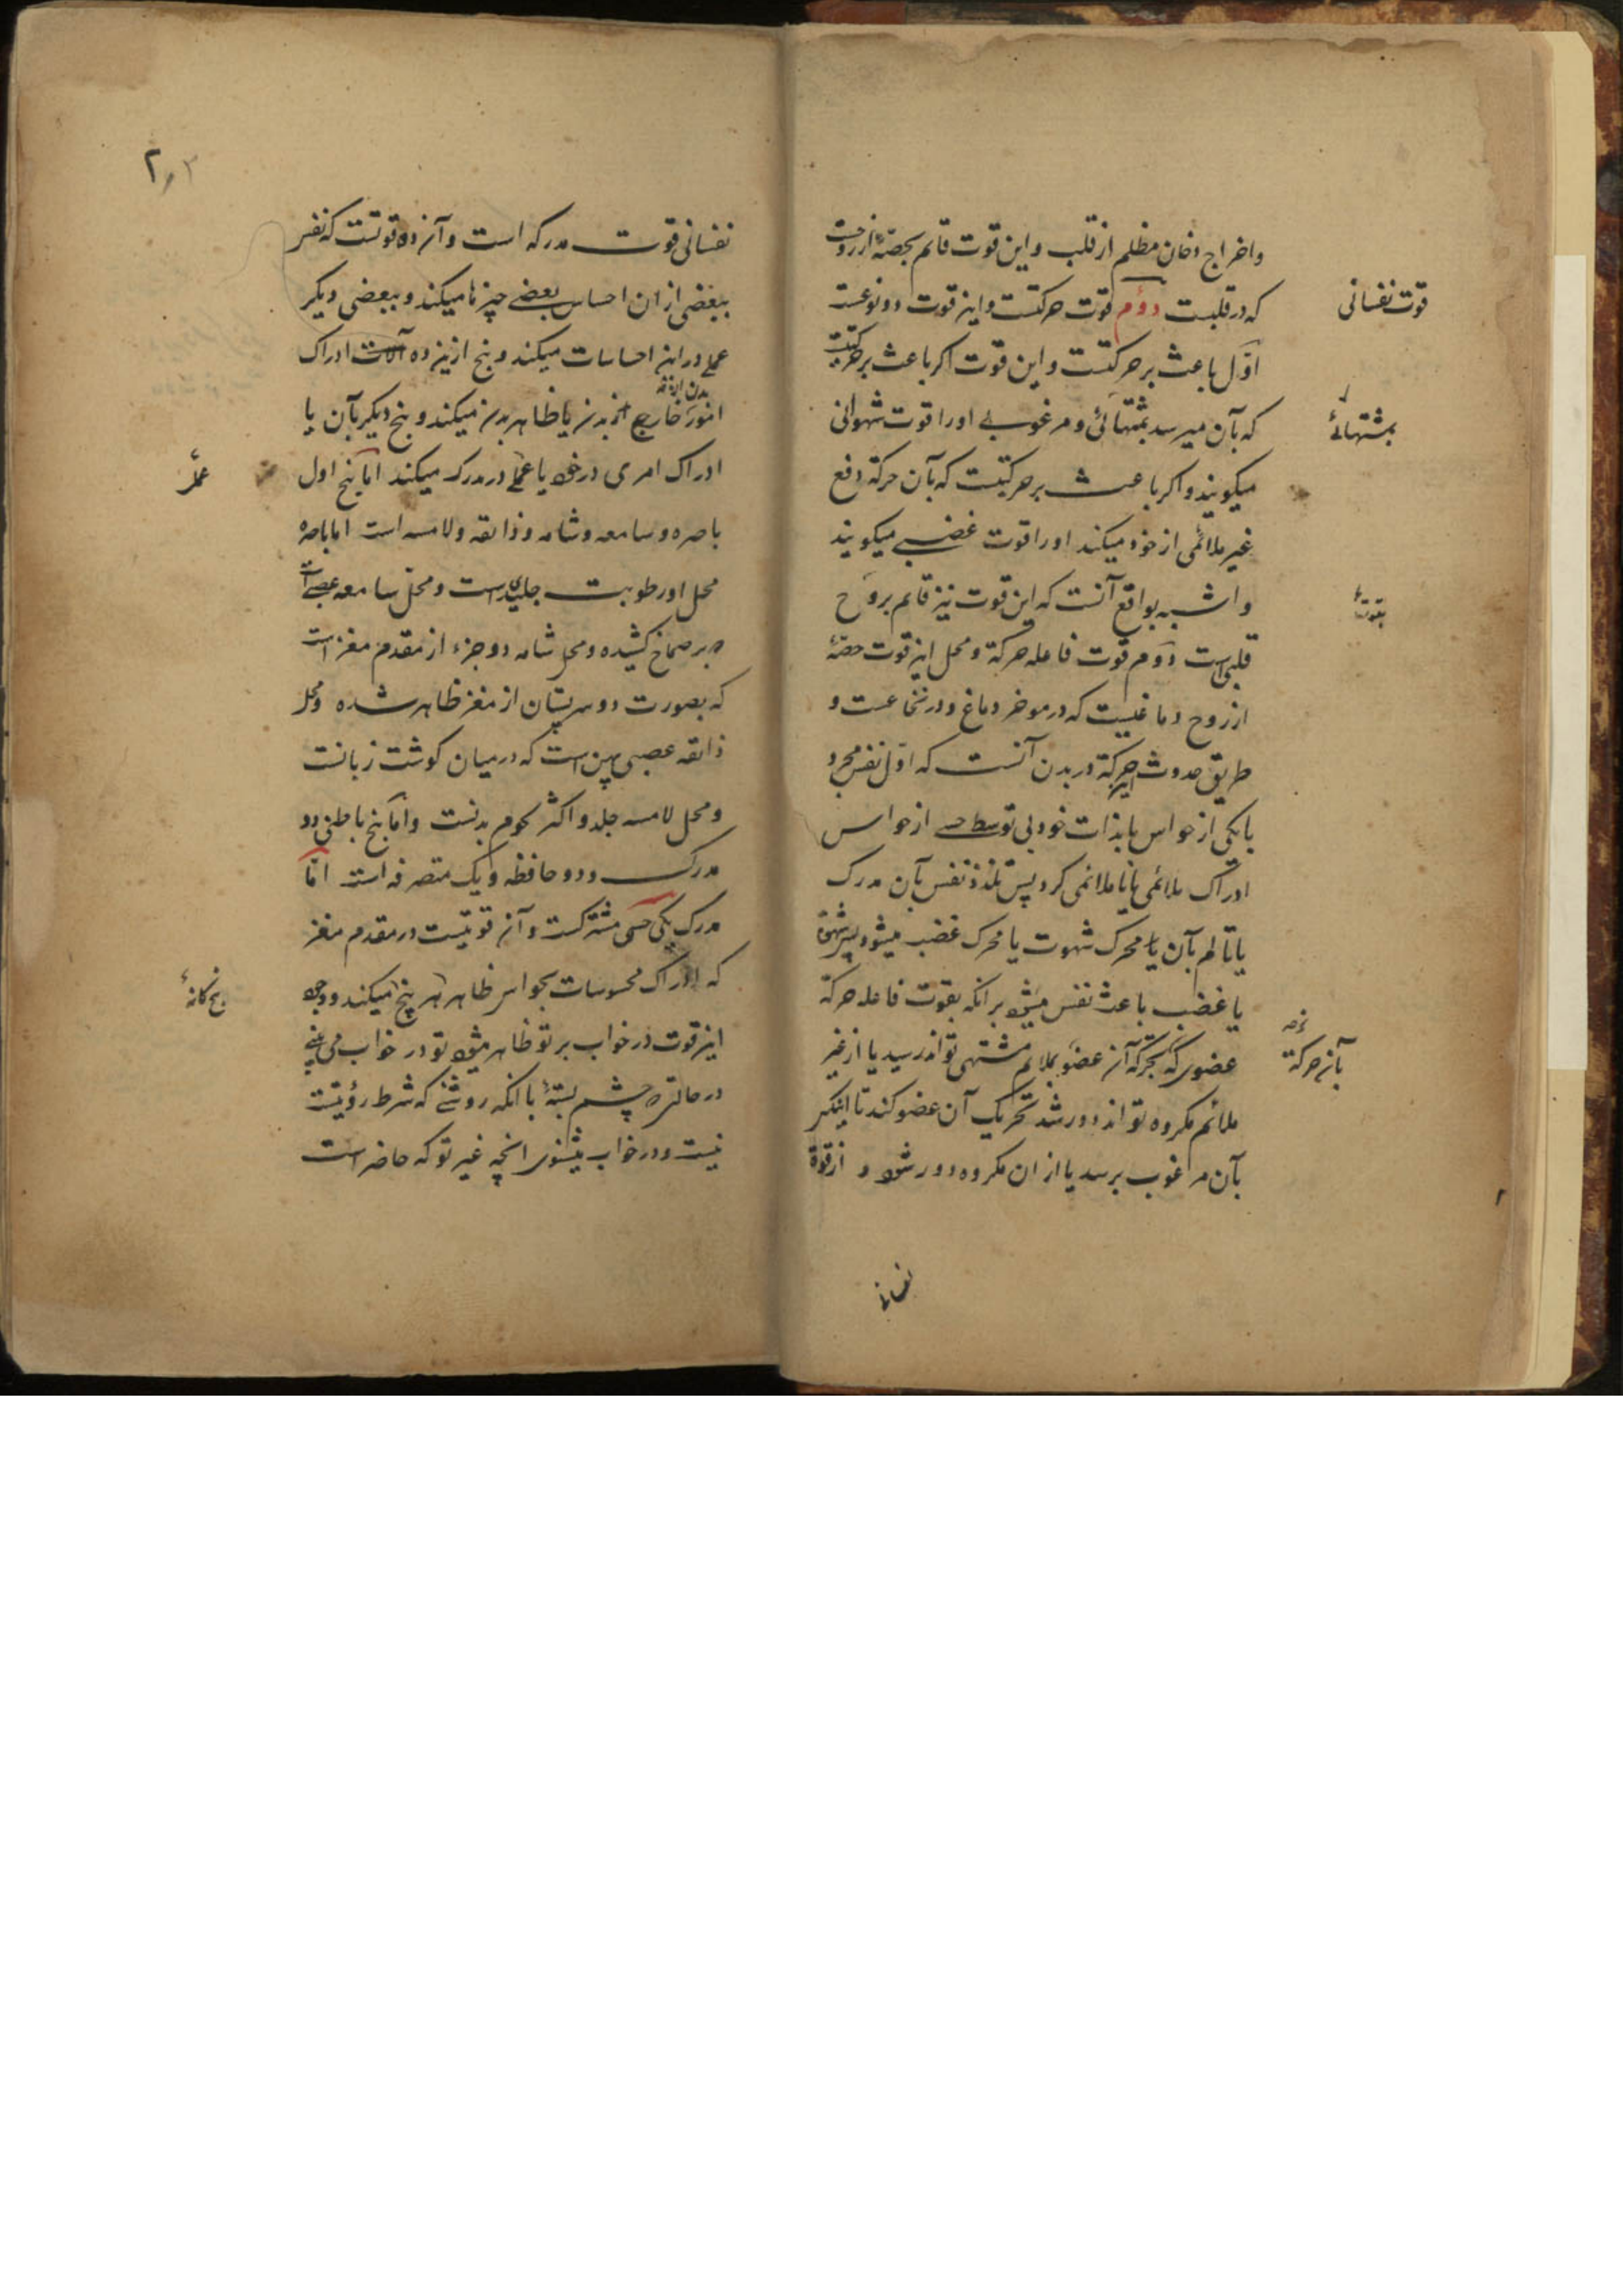 واخراج دخان مظلم از قلب و این قوت قائم بحصّهٔ از روحست
که در قلبست دوّم قوت حرکتست و این قوت دو نوعست
قوت نفسانی
اوّل باعث بر حرکتست و این قوت اکر باعث بر حرکتیست
که بآن میرسد بمشتهائی و مرغوبی او را قوت شهوانی
بمشتهائے
میکویند و اکر باعث بر حرکتیست که بآن حرکة دفع
غیر ملائمی از خود میکند او را قوت غضبے میکویند
و اشبه بواقع آنست که این قوت نیز قائم بروح
قلبی است دوّم قوت فاعله حرکة و محل این قوت حصّهٔ
از روح دماغیست که در موخر دماغ و در نخاعست و
طریق حدوث این حرکة در بدن آنست که اوّل نفس مجرد
یا بیکی از حواس یا بذات خود بی توسط حسے از حواس
ادراک ملائمی یا ناملائمی کرد پس تلذذ نفس بآن مدرک
یا تالم بآن یا محرک شهوت یا محرک غضب میشود پس شهوة
یا غضب باعث نفس میشود بر انکه بقوت فاعله حرکة
عضوی که بحرکة آن عضو بملائم مشتهی تواند رسید یا از غیر
بآن حرکة
ملائم مکروه تواند دور شد تحریک آن عضو کند تا اینکه
بآن مرغوب برسد یا از ان مکروه دور شود و از قوة
نفسانی
۲
نفسانی قوت مدرکه است و آن ده قوتست که نفس
ببعضی از ان احساس بعضے چیزها میکند و ببعضی دیکر
عملے در این احساسات میکند و پنج از این ده آلات ادراک
امور خارج از بدن یا ظاهر بدن میکند و پنج دیکر بآن یا
ادراک امری در خود یا عملے در مدرک میکند اما پنج اول
عملے
باصره و سامعه و شامه و ذائقه و لامسه است اما باصره
محل او رطوبت جلیدی است و محل سامعه عصبے است
که بر صماخ کشیده و محل شامه دو جزء از مقدم مغز است
که بصورت دو سر پستان از مغز ظاهر شده و محل
ذائقه عصبی پهن است که در میان کوشت زبانست
و محل لامسه جلد و اکثر لحوم بدنست و اما پنج باطنی دو
مدرک و دو حافظه و یک متصرفه است امّا
مدرک یکی حس مشترکست و آن قوتیست در مقدم مغز
که ادراک محسوسات بحواس ظاهر هر پنج میکند و وجود
پنجکانهٔ
این قوت در خواب بر تو ظاهر میشود تو در خواب می بینے
در حالتی که چشم بستهٔ با انکه روشنے که شرط رؤیتست
نیست و در خواب میشنوی انچه غیر تو که حاضر است